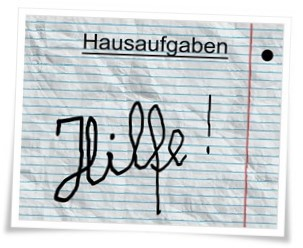 Hausaufgaben
Hilfe!